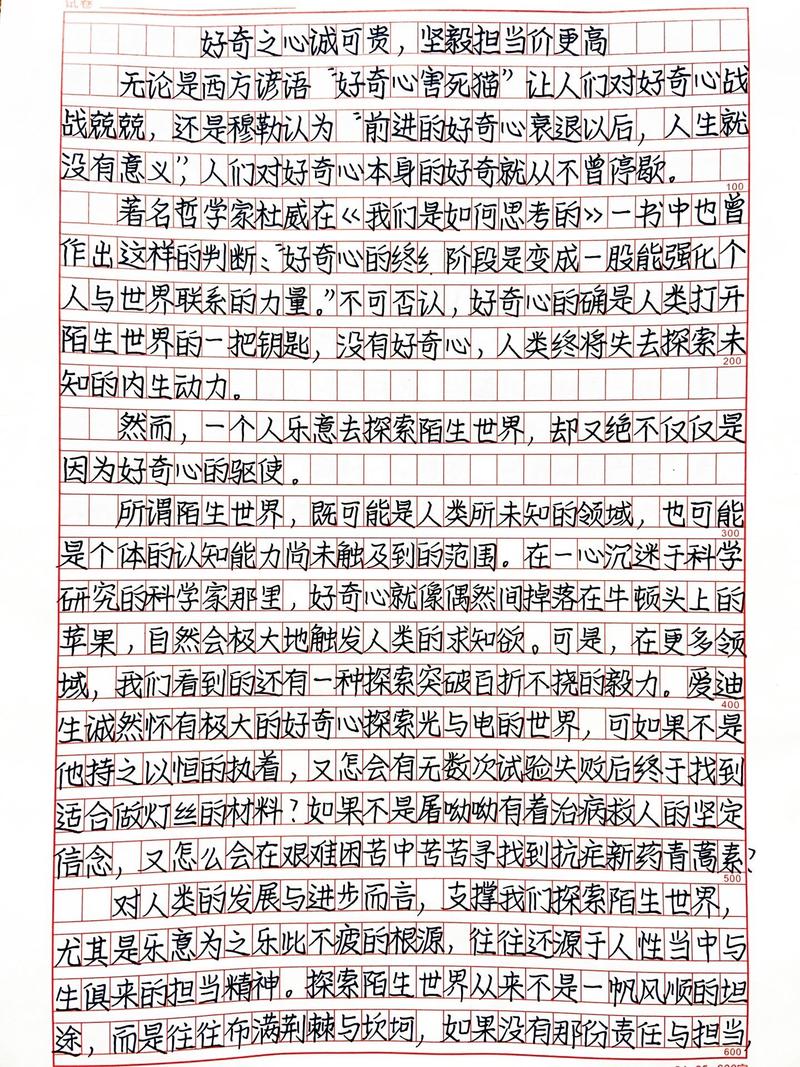 试卷
好奇之心诚可贵，坚毅担当价更高
无论是西方谚语“好奇心害死猫”让人们对好奇心战
战兢兢，还是穆勒认为“前进的好奇心衰退以后，人生就
没有意义”，人们对好奇心本身的好奇就从不曾停歇。
100
著名哲学家杜威在《我们是如何思考的》一书中也曾
作出这样的判断：“好奇心的终纟阶段是变成一股能强化个
人与世界联系的力量。”不可否认，好奇心的确是人类打开
陌生世界的一把钥匙，没有好奇心，人类终将失去探索未
200
知的内生动力。
然而，一个人乐意去探索陌生世界，却又绝不仅仅是
因为好奇心的驱使。
所谓陌生世界，既可能是人类所未知的领域，也可能
300
是个体的认知能力尚未触及到的范围。在一心沉迷于科学
研究的科学家那里，好奇心就像偶然间掉落在牛顿头上的
苹果，自然会极大地触发人类的求知欲。可是，在更多领
域，我们看到的还有一种探索突破百折不挠的毅力。爱迪
400
生诚然怀有极大的好奇心探索光与电的世界，可如果不是
他持之以恒的执着，又怎会有无数次试验失败后终于找到
适合做灯丝的材料？如果不是屠呦呦有着治病救人的坚定
信念，又怎么会在艰难困苦中苦苦寻找到抗疟新药青蒿素？
500
对人类的发展与进步而言，支撑我们探索陌生世界，
尤其是乐意为之乐此不疲的根源，往往还源于人性当中与
生俱来的担当精神。探索陌生世界从来不是一帆风顺的坦
途，而是往往布满荆棘与坎坷，如果没有那份责任与担当，
600